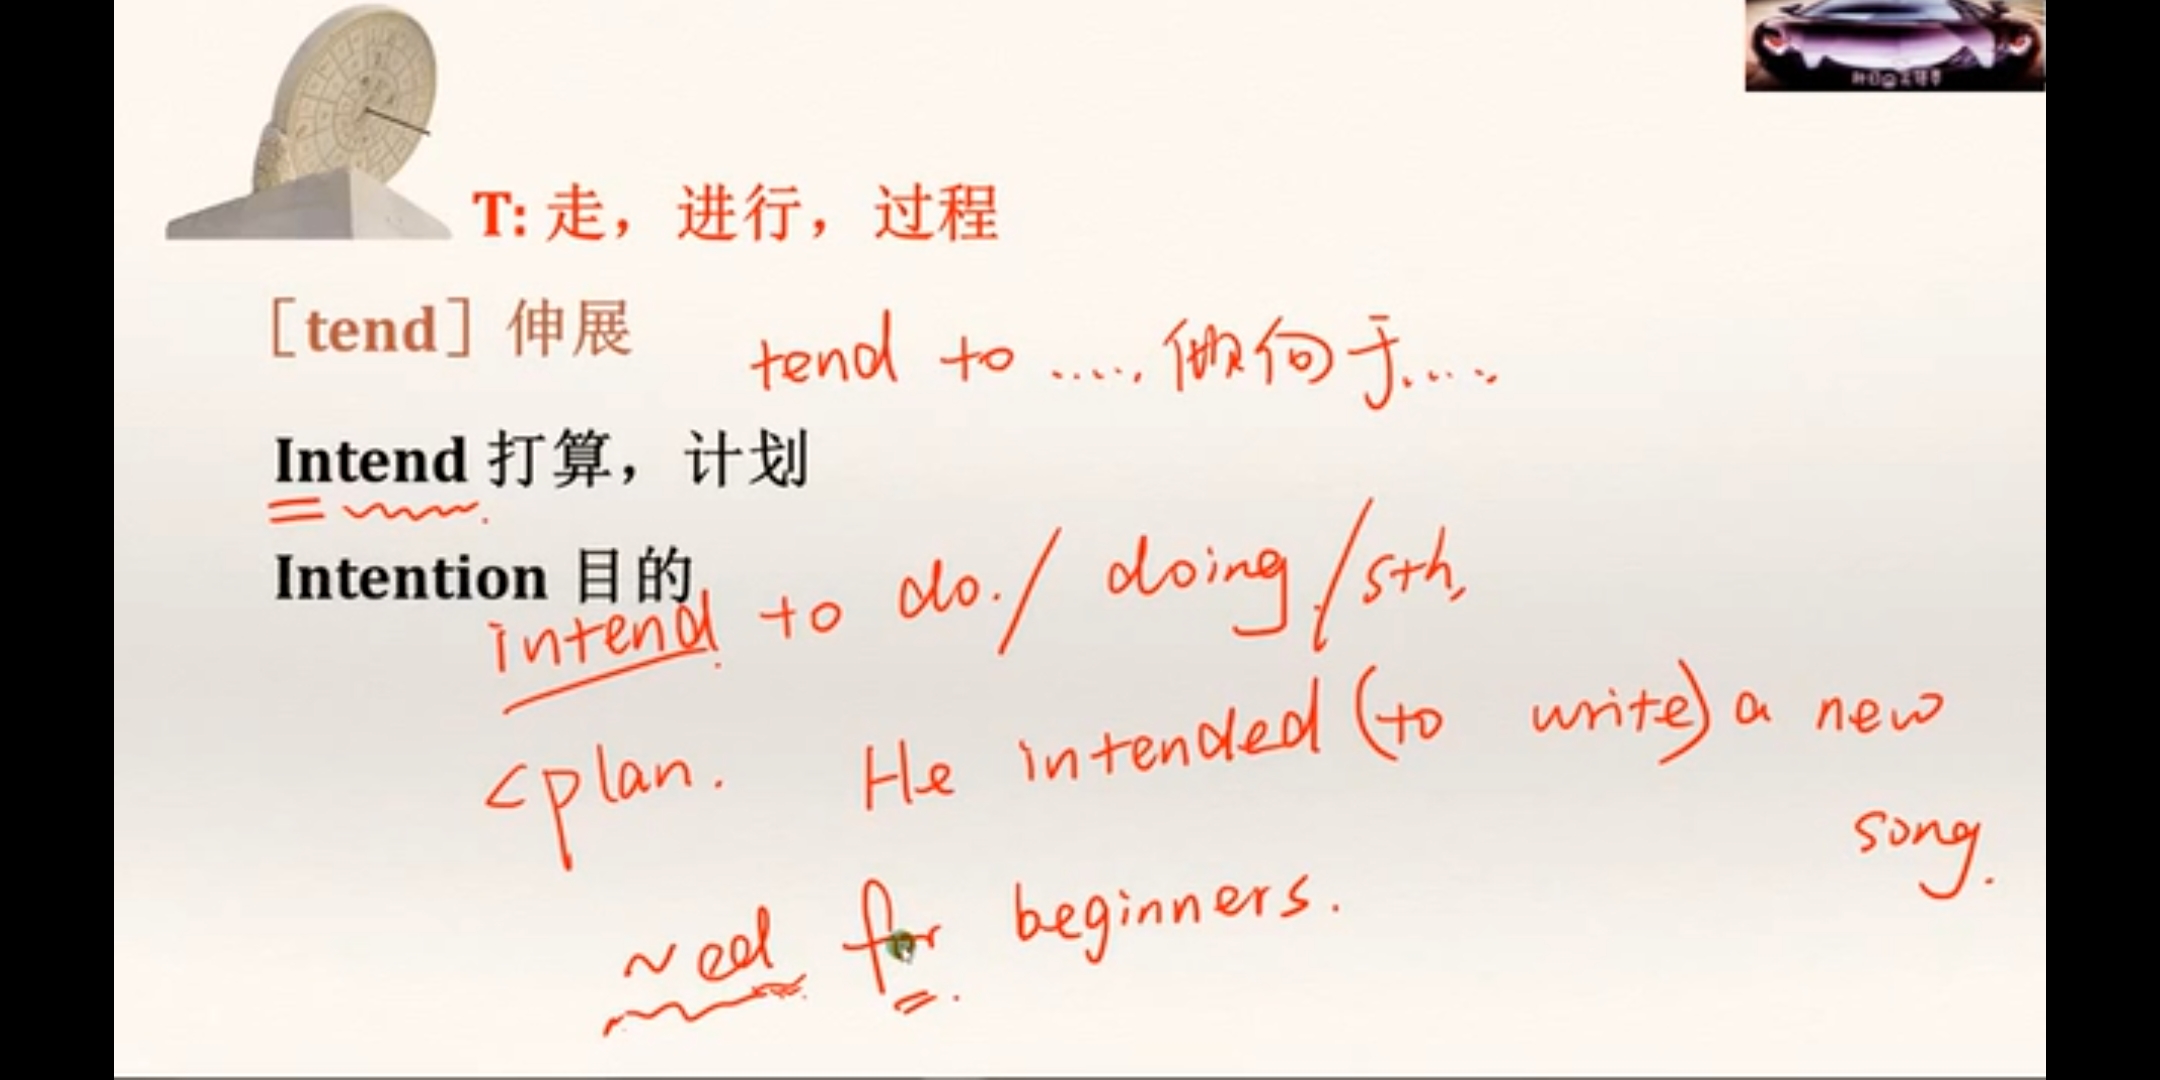 T: 走，进行，过程
[tend] 伸展
tend to ..... 倾向于.....
Intend 打算，计划
Intention 目的
intend to do. / doing / sth.
<plan. He intended (to write) a new
song.
~ed for beginners.